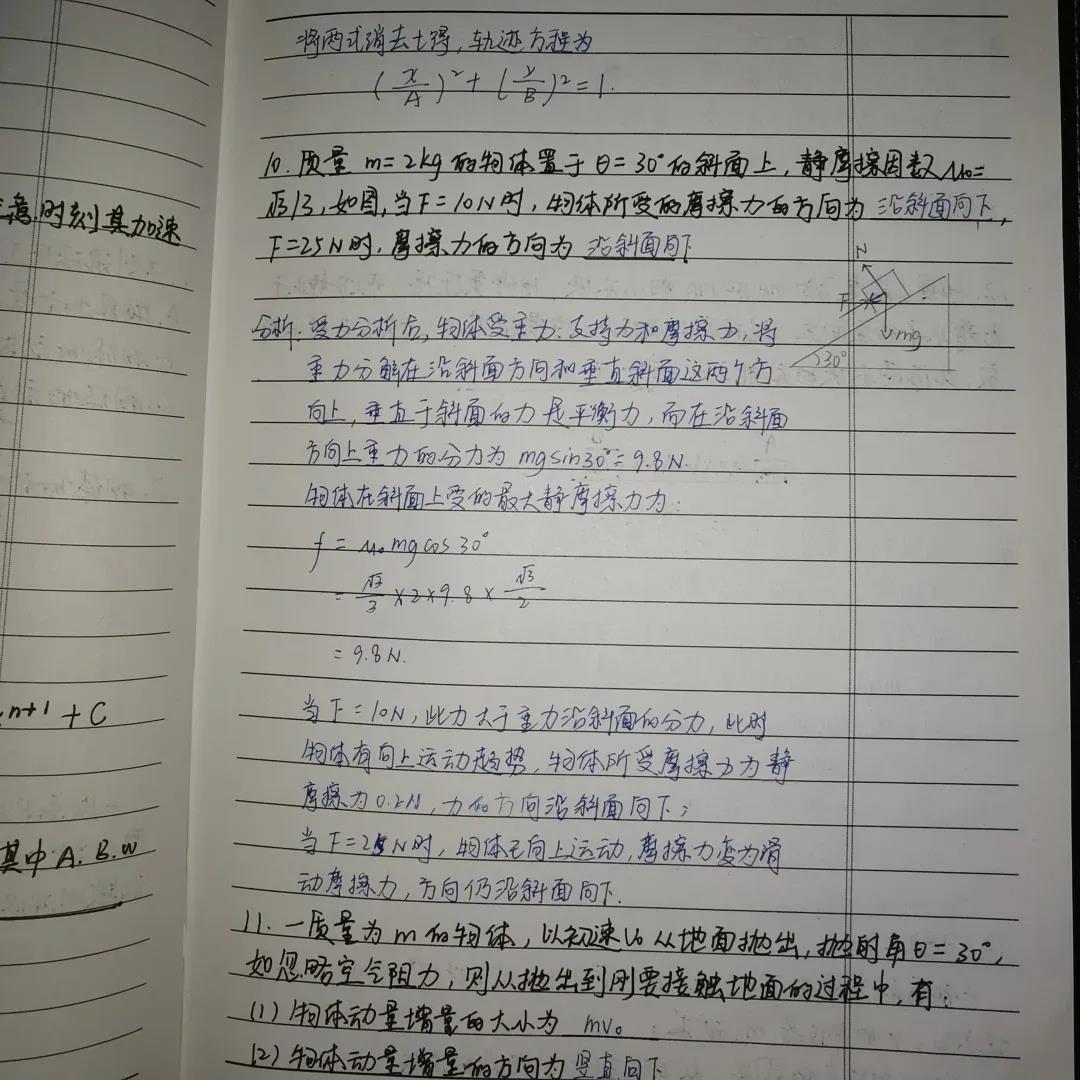 将两式消去t得，轨迹方程为
(x/A)²+(y/B)²=1.
10. 质量 m=2kg 的物体置于θ=30°的斜面上，静摩擦因数μ₀=
√3/3，如图，当F=10N时，物体所受的摩擦力的方向为 沿斜面向下，
F=25N时，摩擦力的方向为 沿斜面向下
意时刻其加速
N
F
mg
30°
分析：受力分析后，物体受重力、支持力和摩擦力，将
重力分解在沿斜面方向和垂直斜面这两个方
向上，垂直于斜面的力是平衡力，而在沿斜面
方向上重力的分力为 mgsin30°=9.8N.
物体在斜面上受的最大静摩擦力为：
f = μ₀mgcos30°
= √3/3 ×2×9.8× √3/2
= 9.8N.
n+1 + C
当F=10N，此力大于重力沿斜面的分力，此时
物体有向上运动趋势，物体所受摩擦力为静
摩擦为0.2N，力的方向沿斜面向下；
其中A.B.w
当F=25N时，物体已向上运动，摩擦力变为滑
动摩擦力，方向仍沿斜面向下.
11. 一质量为m的物体，以初速v₀从地面抛出，抛射角θ=30°，
如忽略空气阻力，则从抛出到刚要接触地面的过程中，有：
(1) 物体动量增量的大小为 mv₀
(2) 物体动量增量的方向为 竖直向下